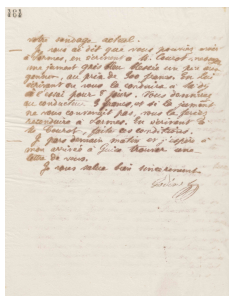 181
votre sondage actuel.
Je vous ai dit que vous pourriez avoir
à Larmes, en écrivant à M. Courot,
une jument gris bleu
au prix de 900 francs. En lui
écrivant il vous la conduira
à l'essai pour 8 jours. Vous donnerez
au conducteur 5 francs, et si la jument
ne vous convenait pas, vous la feriez
reconduire à Larmes. En écrivant à
M. Courot, faites ces conditions.
Je pars demain matin et j'espère à
mon arrivée à Guise trouver une
lettre de vous.
Je vous salue bien sincèrement.
Godin